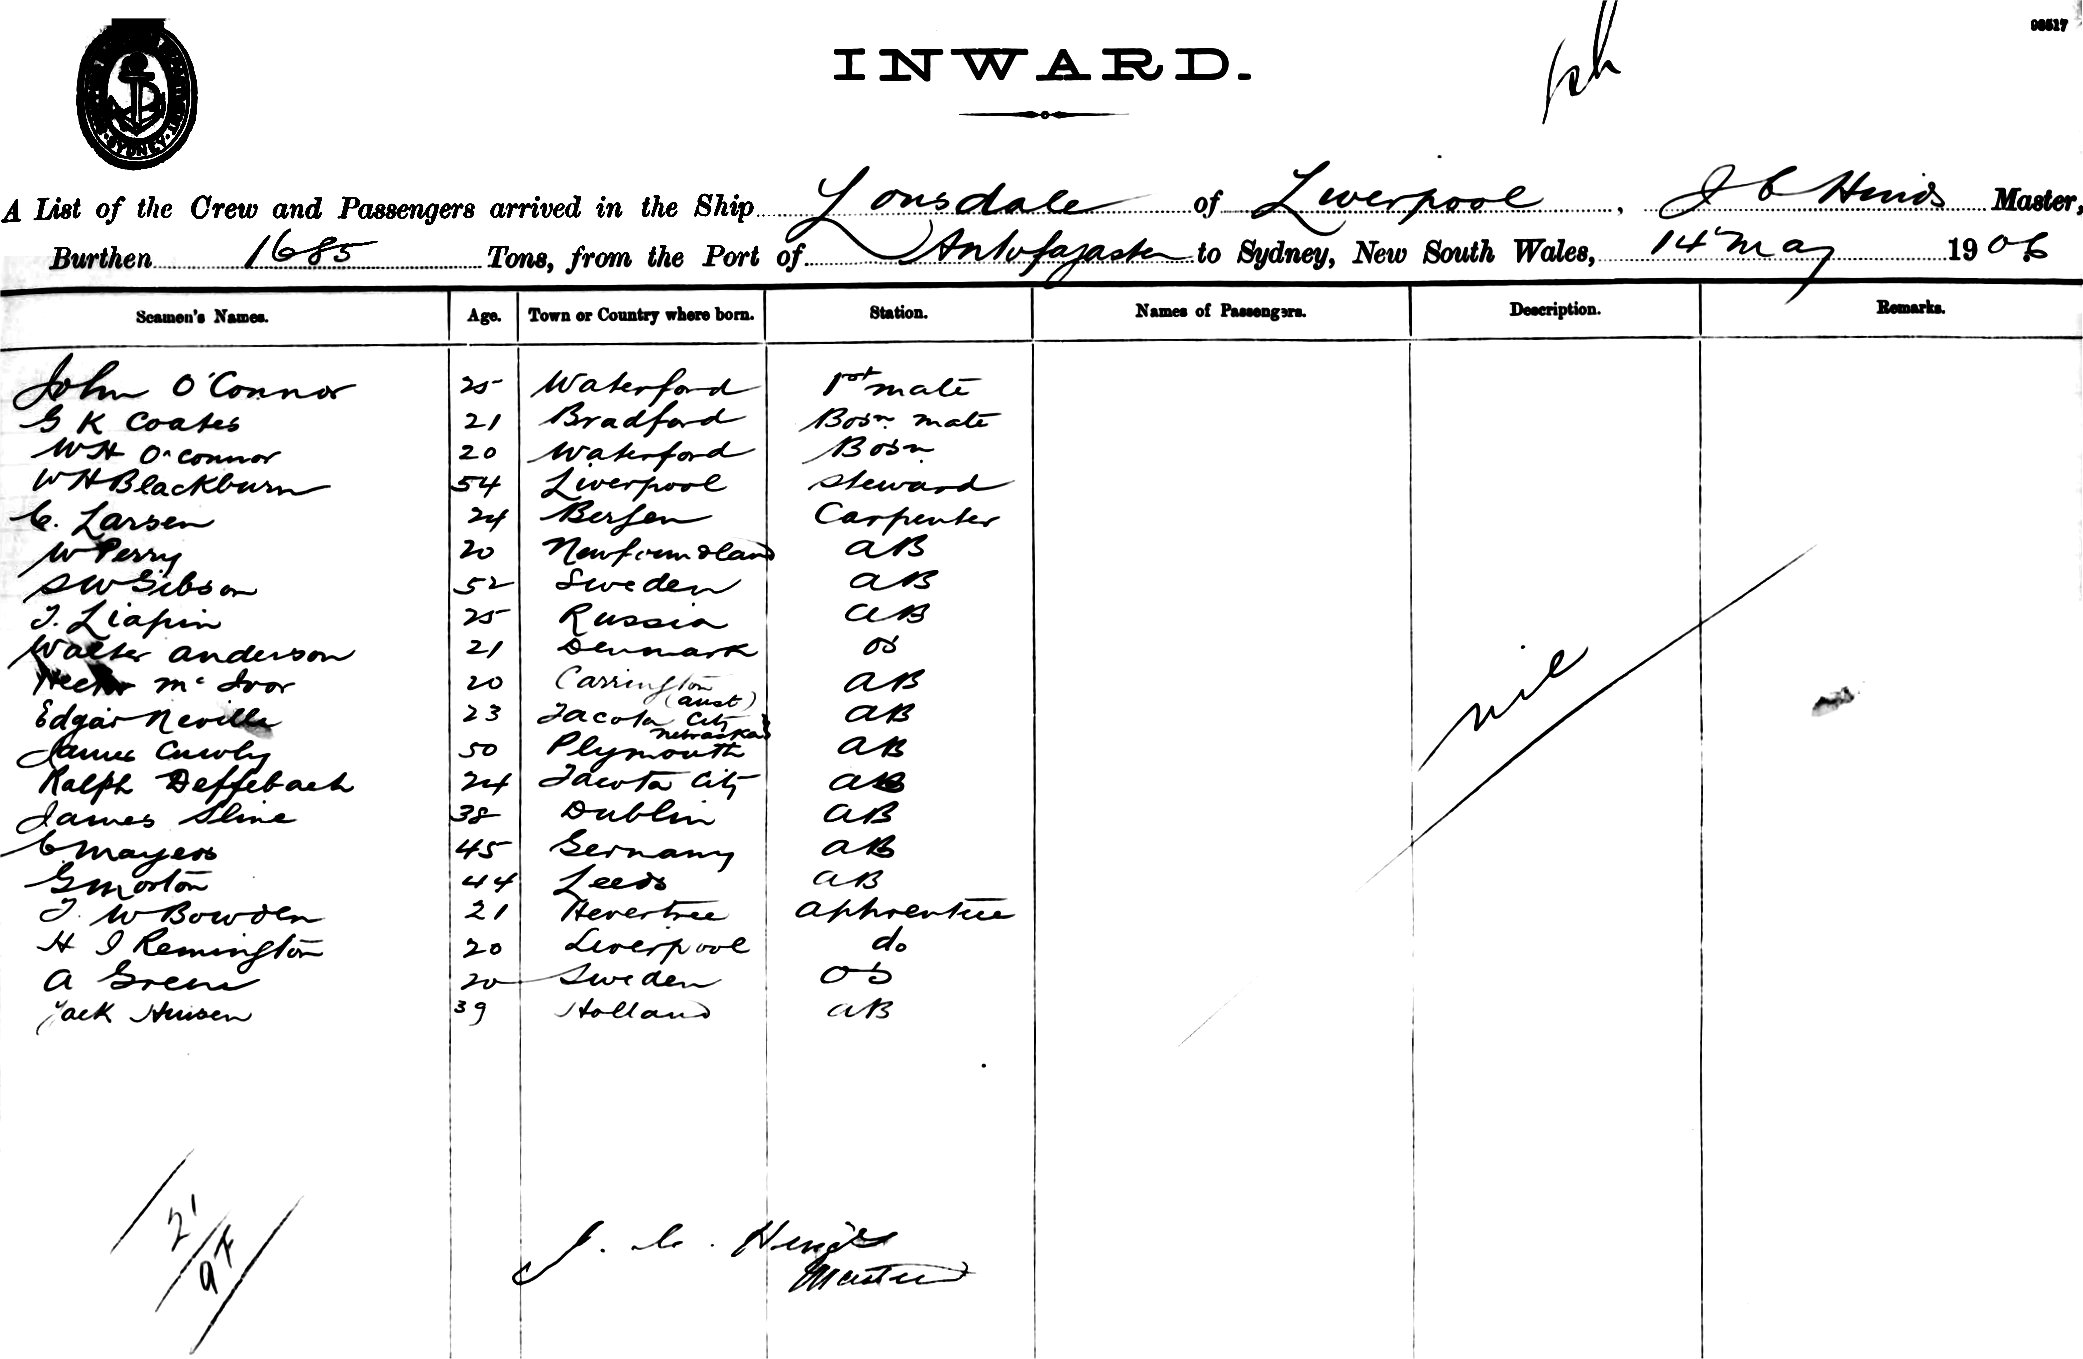 98517
INWARD.
SYDNEY
A List of the Crew and Passengers arrived in the Ship Lonsdale of Liverpool, J C Hinds Master,
Burthen 1685 Tons, from the Port of Antofagasta to Sydney, New South Wales, 14 May 1906
Seamen's Names. Age. Town or Country where born. Station. Names of Passengers. Description. Remarks.
John O'Connor 25 Waterford 1st mate
G K Coates 21 Bradford Bosn mate
W H O'Connor 20 Waterford Bosn
W H Blackburn 54 Liverpool Steward
C. Larsen 24 Bergen Carpenter
W Perry 20 Newfoundland AB
S W Gibson 52 Sweden AB
T. Liapin 25 Russia AB
Walter Anderson 21 Denmark OS
Hector McIvor 20 Carrington (Aust) AB
Edgar Neville 23 Jacota City Nebraska AB
James Curly 50 Plymouth AB
Ralph Deffebach 24 Jacota City AB
James Sline 38 Dublin AB
C Mayers 45 Germany AB
G Morton 44 Leeds AB
T. W Bowden 21 Hevertree Aphrentice
H I Remington 20 Liverpool do
A Grene 20 Sweden OS
Jack Huisen 39 Holland AB
nil
21
J. C. Hinds
Master